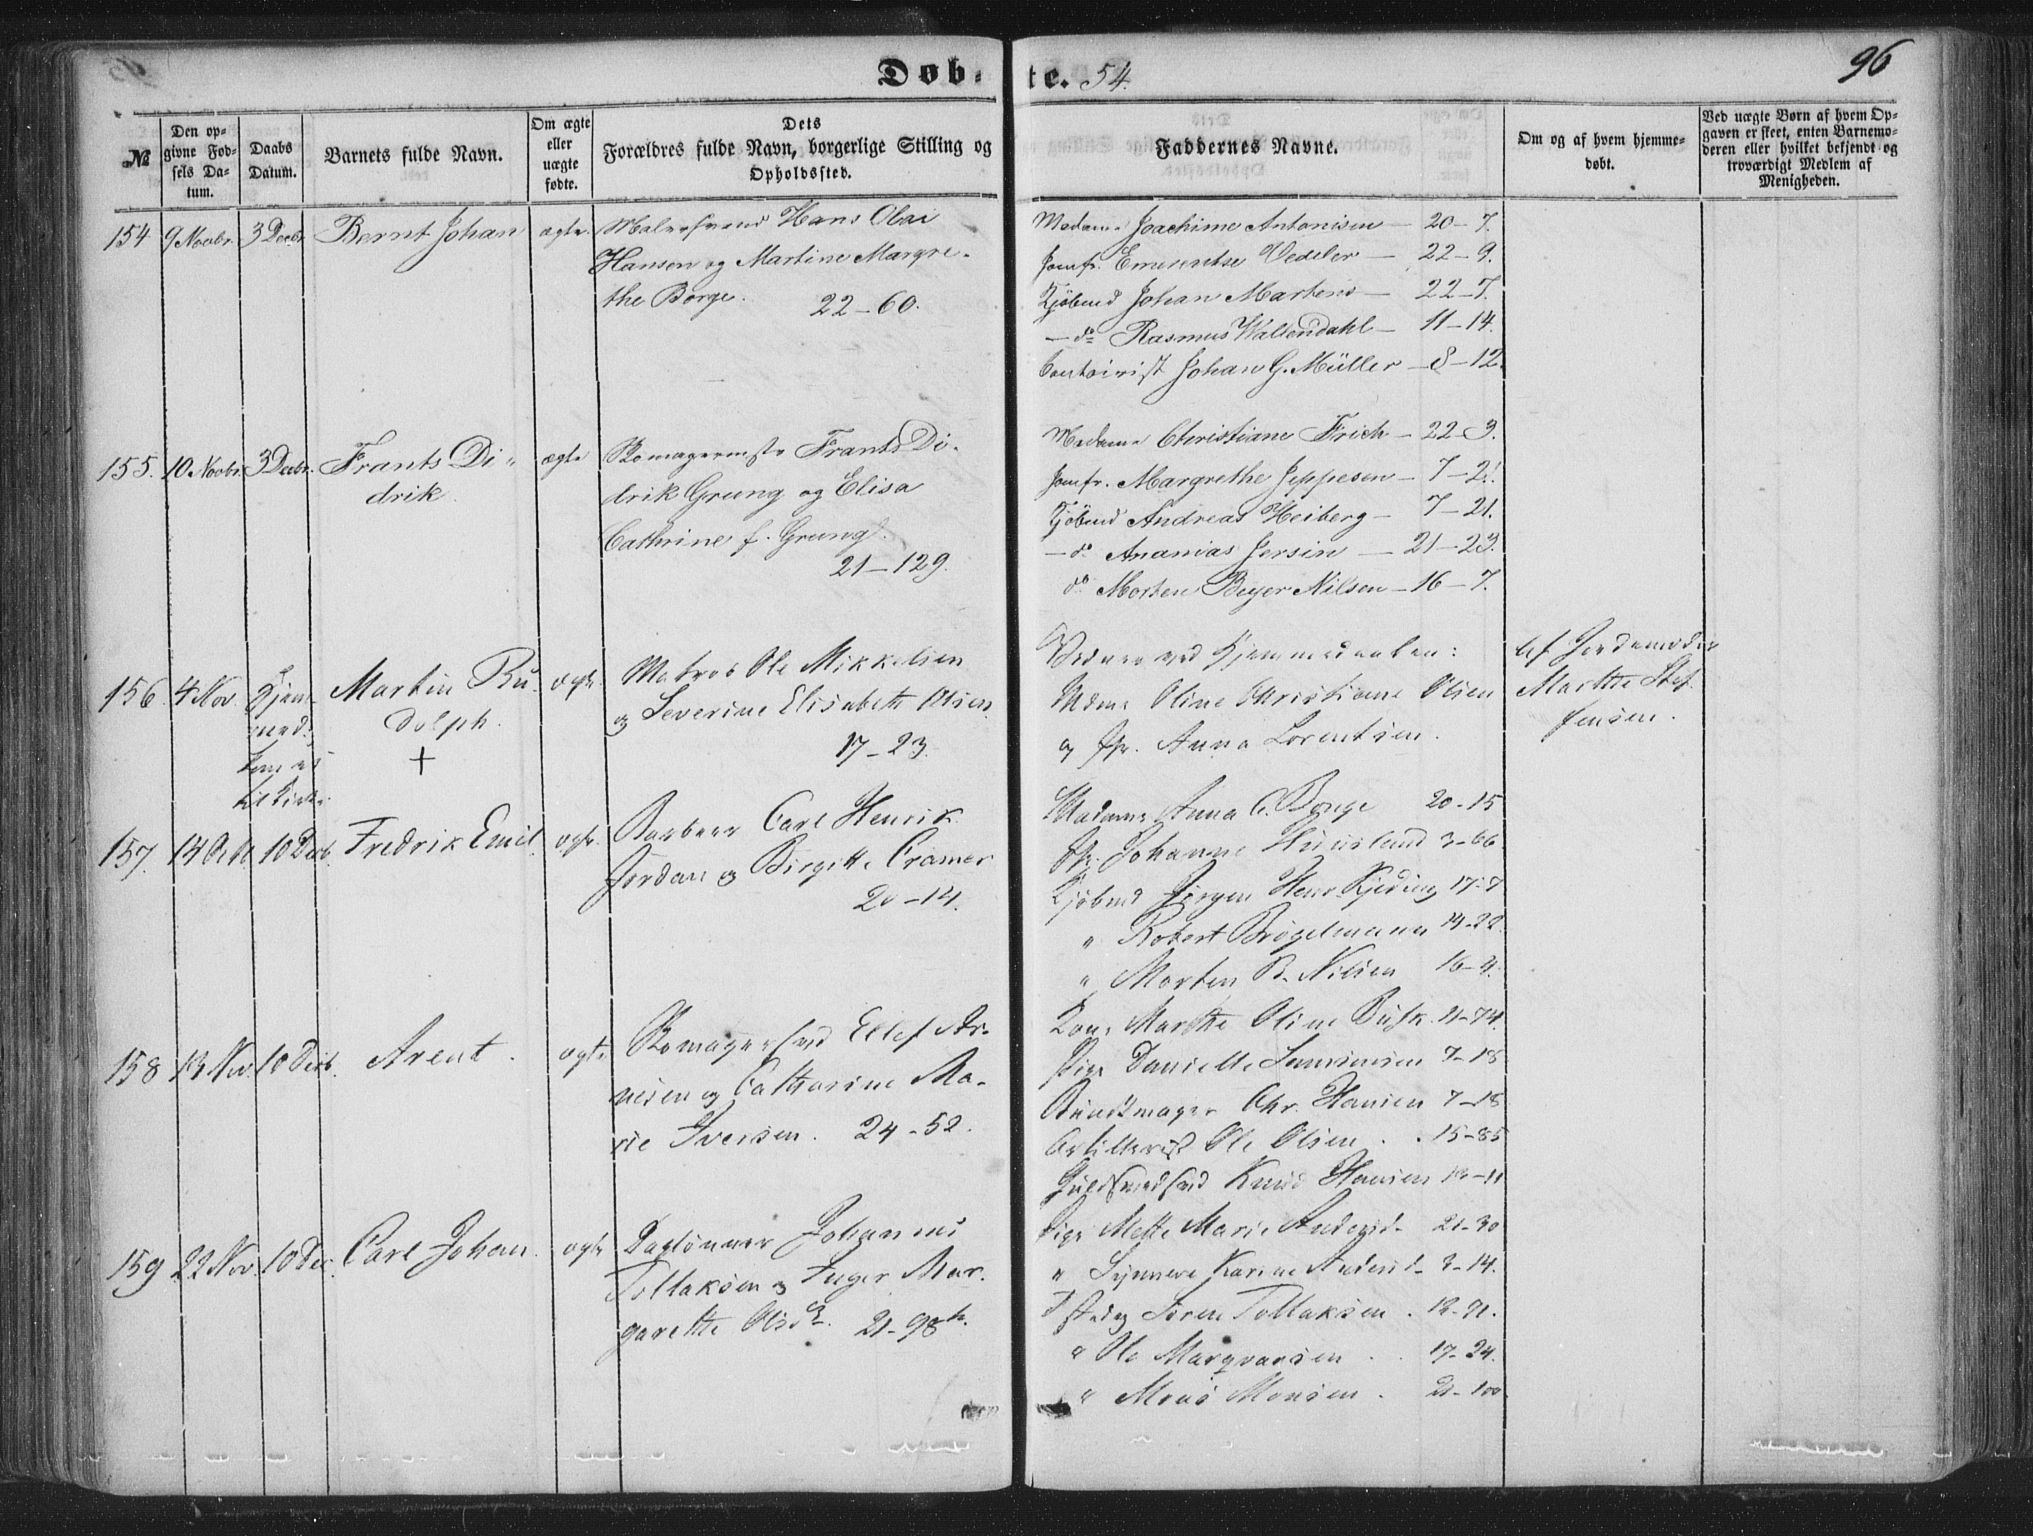 Døb-te. 54.
96
№
Den opgivne Fødsels Datum.
Daabs Datum.
Barnets fulde Navn.
Om ægte eller uægte fødte.
Dets Forældres fulde Navn, borgerlige Stilling og Opholdssted.
Faddernes Navne.
Om og af hvem hjemmedøbt.
Ved uægte Børn af hvem Opgaven er skeet, enten Barnemoderen eller hvilket bekjendt og troværdigt Medlem af Menigheden.
154 9 Novbr. 3 Decbr. Bernt Johan ægte. Malersvend Hans Olai
Hansen og Martine Margre-
the Borge. 22-60.
Madame Joachime Antonisen — 20-7.
Jomfr. Emerentse Vedeler — 22-9.
Kjøbmd Johan Martens — 22-7.
— do Rasmus Wallendahl — 11-14.
Contoirist Johan G. Müller — 8-12.
155. 10 Novbr. 3 Decbr. Frants Di-
drik
ægte Skomagermstr Frants Di-
drik Grung og Elisa
Cathrine f. Grung.
21-129.
Madame Christiane Frich — 22-3.
Jomfr. Margrethe Jeppesen — 7-21.
Kjøbmd Andreas Heiberg — 7-21.
— do Ananias Jersin — 21-23.
do Morten Beyer Nilsen — 16-7.
156. 4 Nov. Hjem-
med.
kom ei
til Kirke
Martin Ru-
dolph.
+
ægte. Matros Ole Mikkelsen
og Severine Elisabeth Olsen
17-23.
Vidner ved Hjemmedaaben:
Madme Oline Christiane Olsen
og Jfr. Anna Lorentsen.
af Jordemoder
Marthe Stef-
fensen.
157. 14 Octb. 10 Decb. Fredrik Emil ægte. Barbeer Carl Henrik
Jordan og Birgitte Cramer
20-14.
Madame Anna C. Borge 20-15
Jfr. Johanne Huusland 3-66
Kjøbmd Jørgen Henr. Kjeding 17-7
" Robert Brøgelmann 14-22.
" Morten B. Nilsen 16-4.
158 13 Nov. 10 Decb. Arent. ægte Skomagersvd Ellef Ar-
nesen og Catharine Ma-
rie Iversen. 24-52.
Kone Marthe Oline Busk. 21-74.
Pige Danielle Samsonsen 7-18
Bundtmager Chr. Hansen 7-18
Artillerist Ole Olsen . . 15-85
Guldsmedsvd Knud Hansen 12-11
159 22 Nov. 10 Dec. Carl Johan. ægte Daglønner Johannes
Tollaksen og Inger Mar-
garethe Olsdr. 21-98b.
Pige Mette Marie Andersd. 21-30
" Synneve Karine Andersd. 3-14.
Søren Tollaksen . 12-91.
" Ole Marqvarsen . . 17-24.
" Mons Monsen . 21-100